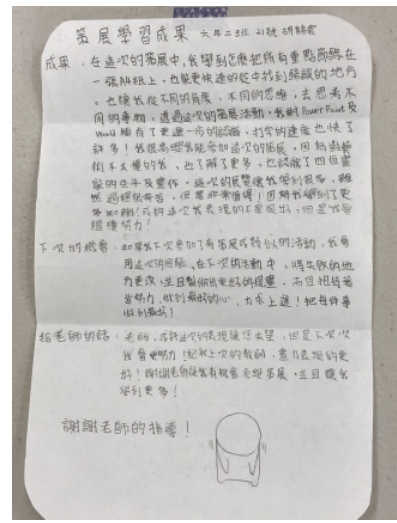 策展學習成果 六年二班 21號
成果:在這次的策展中,我學到怎麼把所有重點節錄在
一張A4紙上,也能更快速的從中找到錯誤的地方
。也讓我從不同的角度、不同的思維,去思考不
同的事物,透過這次的策展活動,我對PowerPoint及
World 擁有了更進一步的認識,打字的速度也快了
許多!我很高興我能參加這次的策展,因為對藝
術不太懂的我,也了解了更多,也認識了四位畫
家的生平及畫作。這次的展覽讓我學到很多,雖
然過程很辛苦,但是非常值得!因為我學到了更
多知識!或許這次我表現的不是很出,但是我會
繼續努力!
下次的機會:如果我下次參加了有策展或類似的活動,我會
用這次的經驗,在下次的活動中,將失敗的地
方更改,並且製作出更好的,而且抱持著
努力、做到最好的心,力求上進!把每件事
做到最好!
給老師的話:老師,或許這次的表現讓您失望,但是下次
我會更努力!記取上次的教訓,盡力表現的更
好!謝謝老師讓我有機會參與策展,並且讓我
學到更多!
謝謝老師的指導!